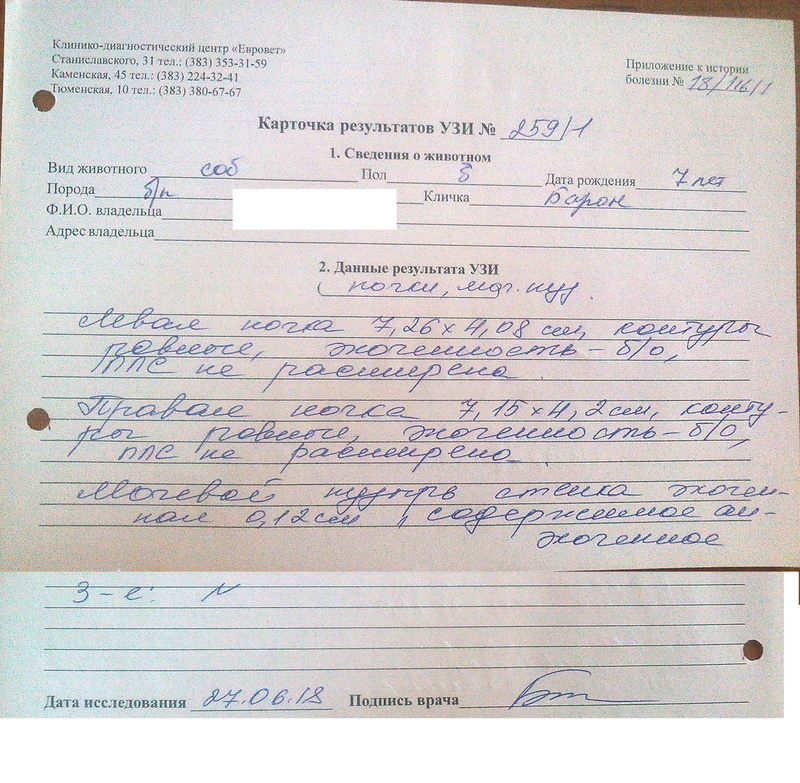 Клинико-диагностический центр «Евровет»
Станиславского, 31 тел.: (383) 353-31-59
Каменская, 45 тел.: (383) 224-32-41
Тюменская, 10 тел.: (383) 380-67-67
Приложение к истории
болезни № 18/116/1
Карточка результатов УЗИ № 259/1
1. Сведения о животном
Вид животного соб Пол Дата рождения 7 лет
Порода б/п Кличка Барон
Ф.И.О. владельца
Адрес владельца
2. Данные результата УЗИ
почки, моч. пуз.
Левая почка 7,26 х 4,08 см, контуры
ровные, эхогенность – б/о,
ЛПС не расширена
Правая почка 7,15 х 4,2 см, конту-
ры ровные, эхогенность – б/о,
ЛПС не расширена
Мочевой пузырь стенка эхоген-
ная 0,12 см, содержимое ан-
эхогенное
З-е: N
Дата исследования 27.06.18 Подпись врача